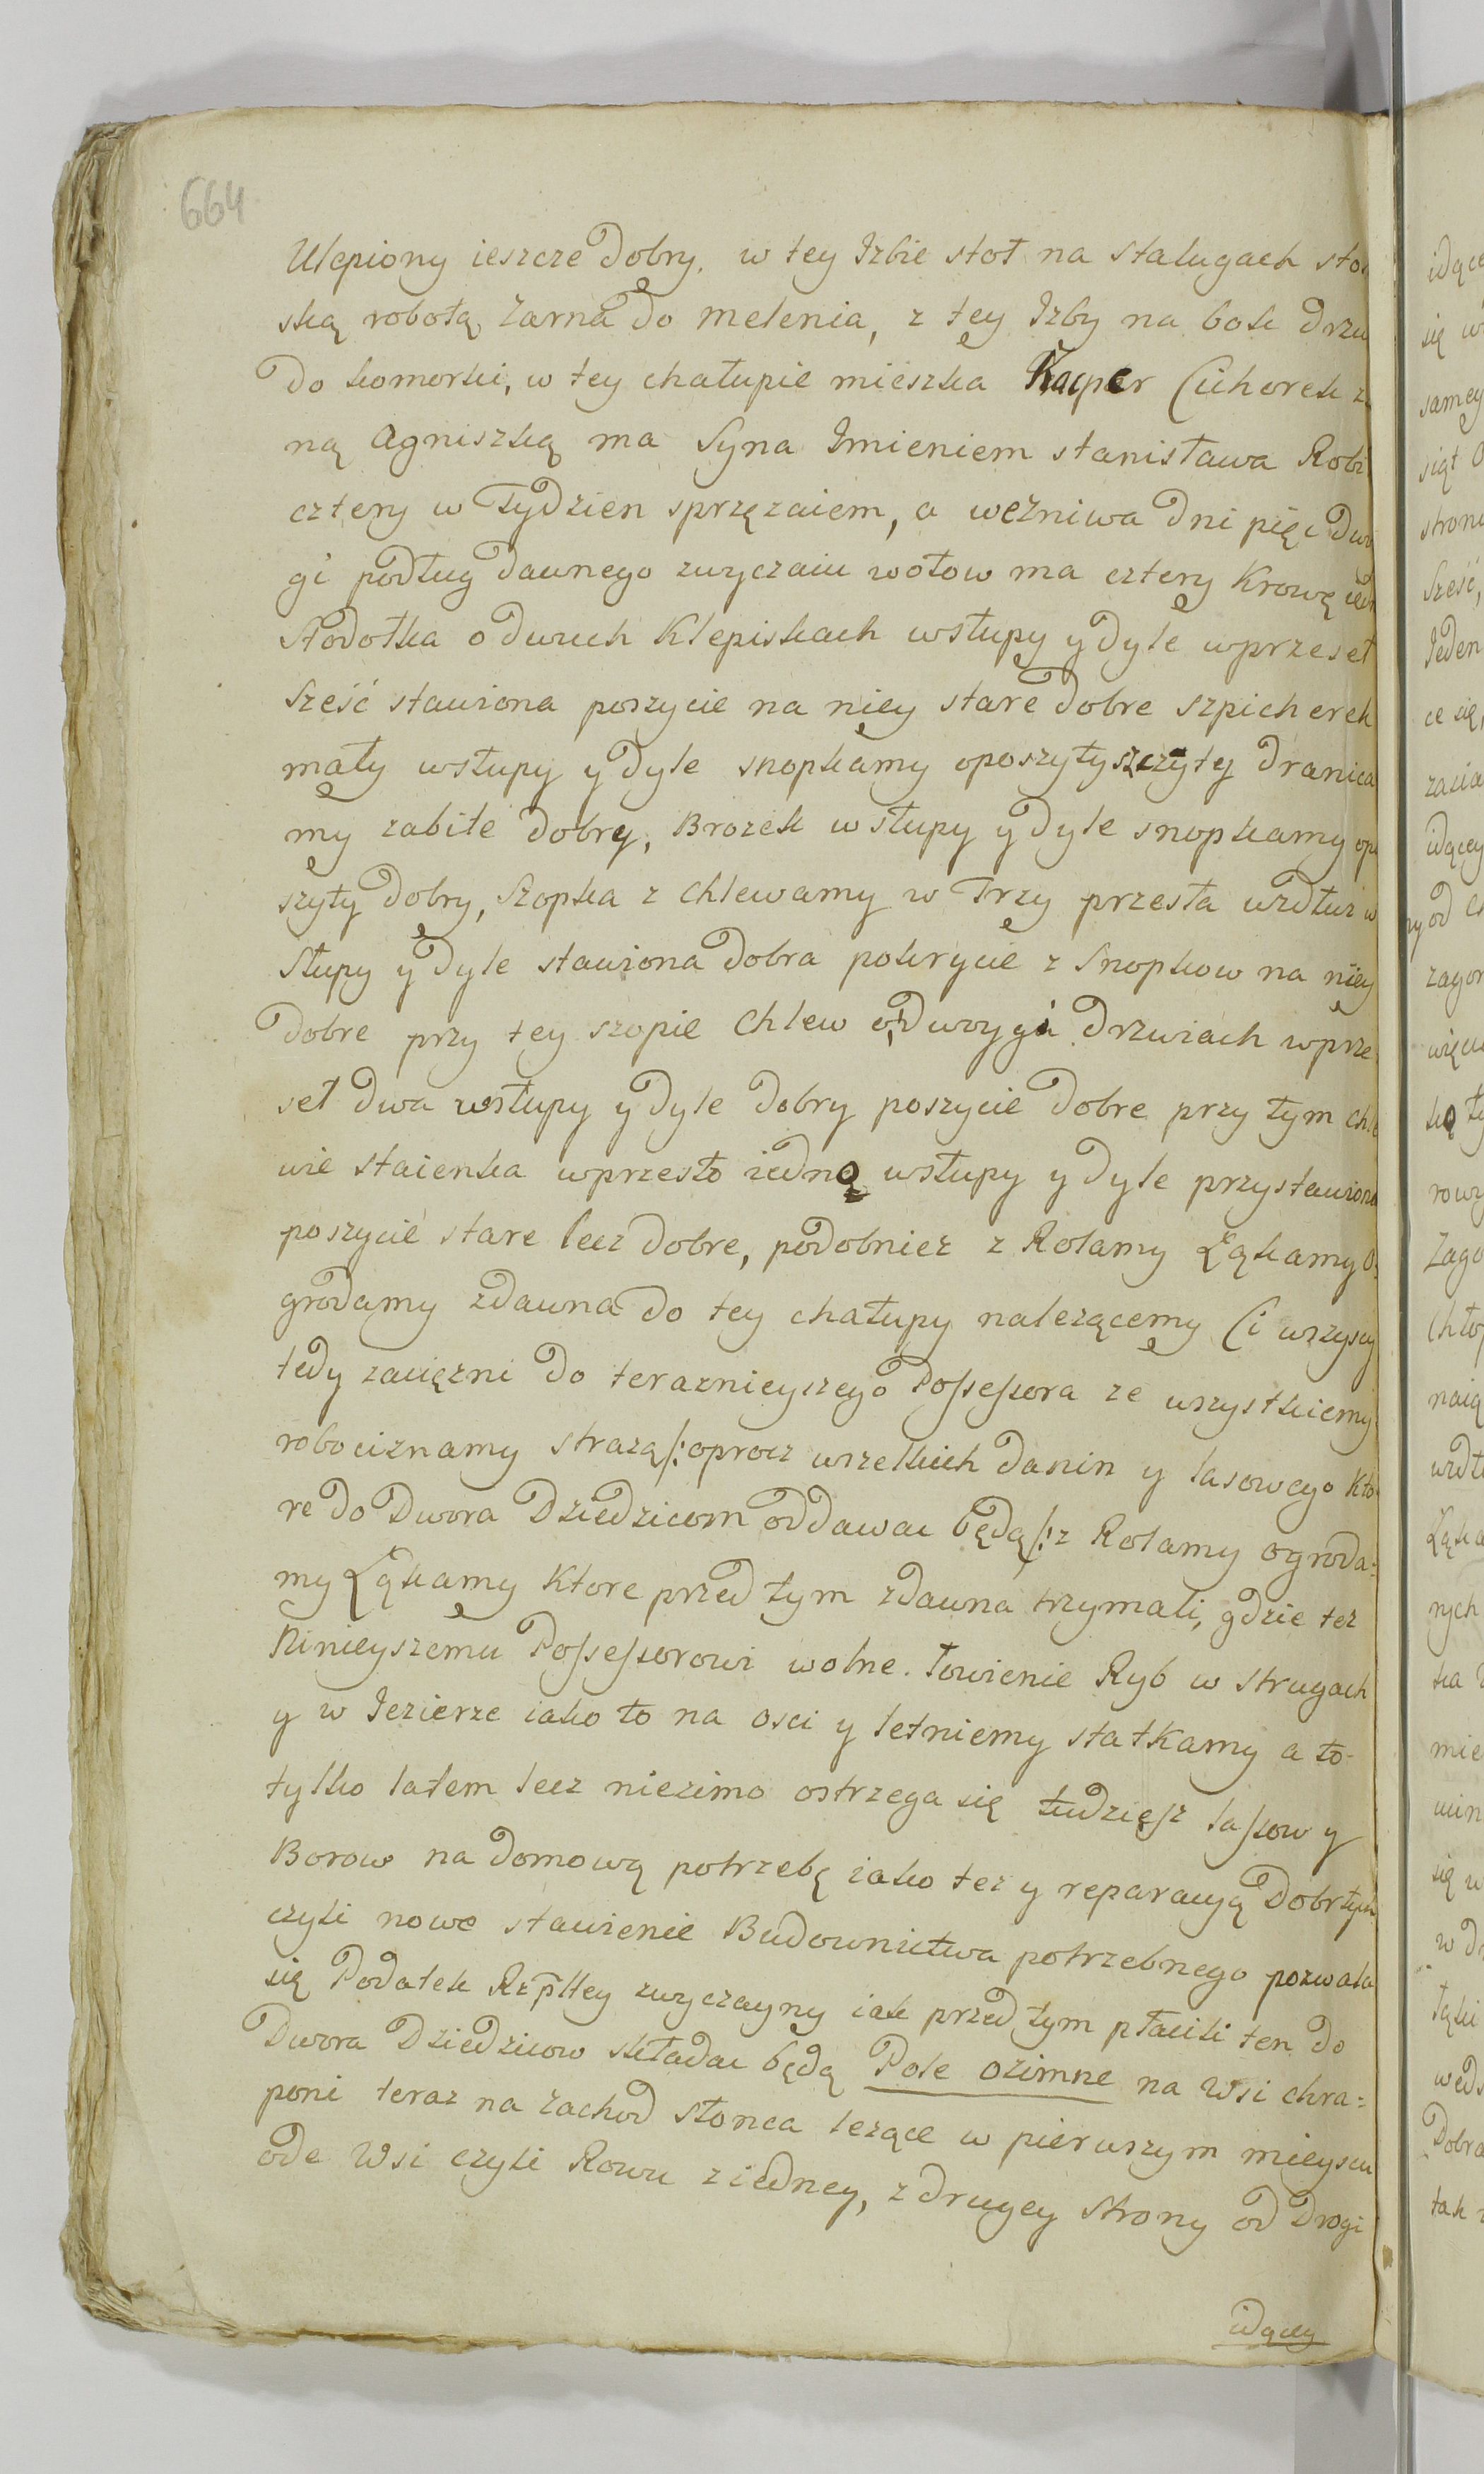 664
Ulepiony ieszcze dobry. w tey Izbie stoł na stalugach sto
ską robotą, żarna do melenia, z tey Izby na bok drzw
do komorki, w tey chałupie mieszka Kacper Cichorek z
ną Agniszką ma Syna Imieniem stanisława Robi
cztery w Tydzien sprzęzaiem, a weżniwa dni pięc dwo
gi podług dawnego zwyczaiu wołow ma cztery Krowę iedn
Stodołka o dwuch Klepiskach wstupy y dyle wprzeseł
Sześć stawiona poszycie na niey stare dobre szpicherek
mały wstupy y dyle snopkamy oposzyty szczyty dranica
my zabite dobry, Brozek wstupy y dyle snopkamy opo
szyty dobry, Szopka z Chlewamy w Trzy przesła wzdłuż w
Słupy y dyle stawiona dobra pokrycie z Snopkow na niey
dobre przy tey szopie Chlew o dwoygi drzwiach wprze
seł dwa wstupy y dyle dobry poszycie dobre przy tym chle
wie staienka wprzesło iedno wstupy y dyle przystawiona
poszycie stare lecz dobre, podobniez z Rolamy Łąkamy O
grodamy zdawna do tey chałupy nalezącemy Ci wszyscy
tedy zaciężni do teraznieyszego Possessora ze wszystkiemy
robociznamy strażą /: oprocz wszelkich danin y lasowego Kto
re do Dwora Dziedzicom oddawac będą /: z Rolamy ogroda=
my Łąkamy Ktore przed tym zdawna trzymali, gdzie tez
Ninieyszemu Possessorowi wolne. Łowienie Ryb w strugach
y w Iezierze iako to na osci y letniemy statkamy a to-
tylko latem lecz niezimo ostrzega się tudziesz lassow y
Borow na domową potrzebę iako tez y reparacyą Dobr tych
czyli nowe stawienie Budownictwa potrzebnego pozwala
się Podatek Rzpltey zwyczayny iak przed tym płacili ten do
Dwora Dziedzicow składac będą Pole ozimne na Wsi chra=
poni teraz na zachod słonca lezące w pierwszym mieyscu
ode Wsi czyli Rowu z iedney, z drugey Strony od Drogi
idący